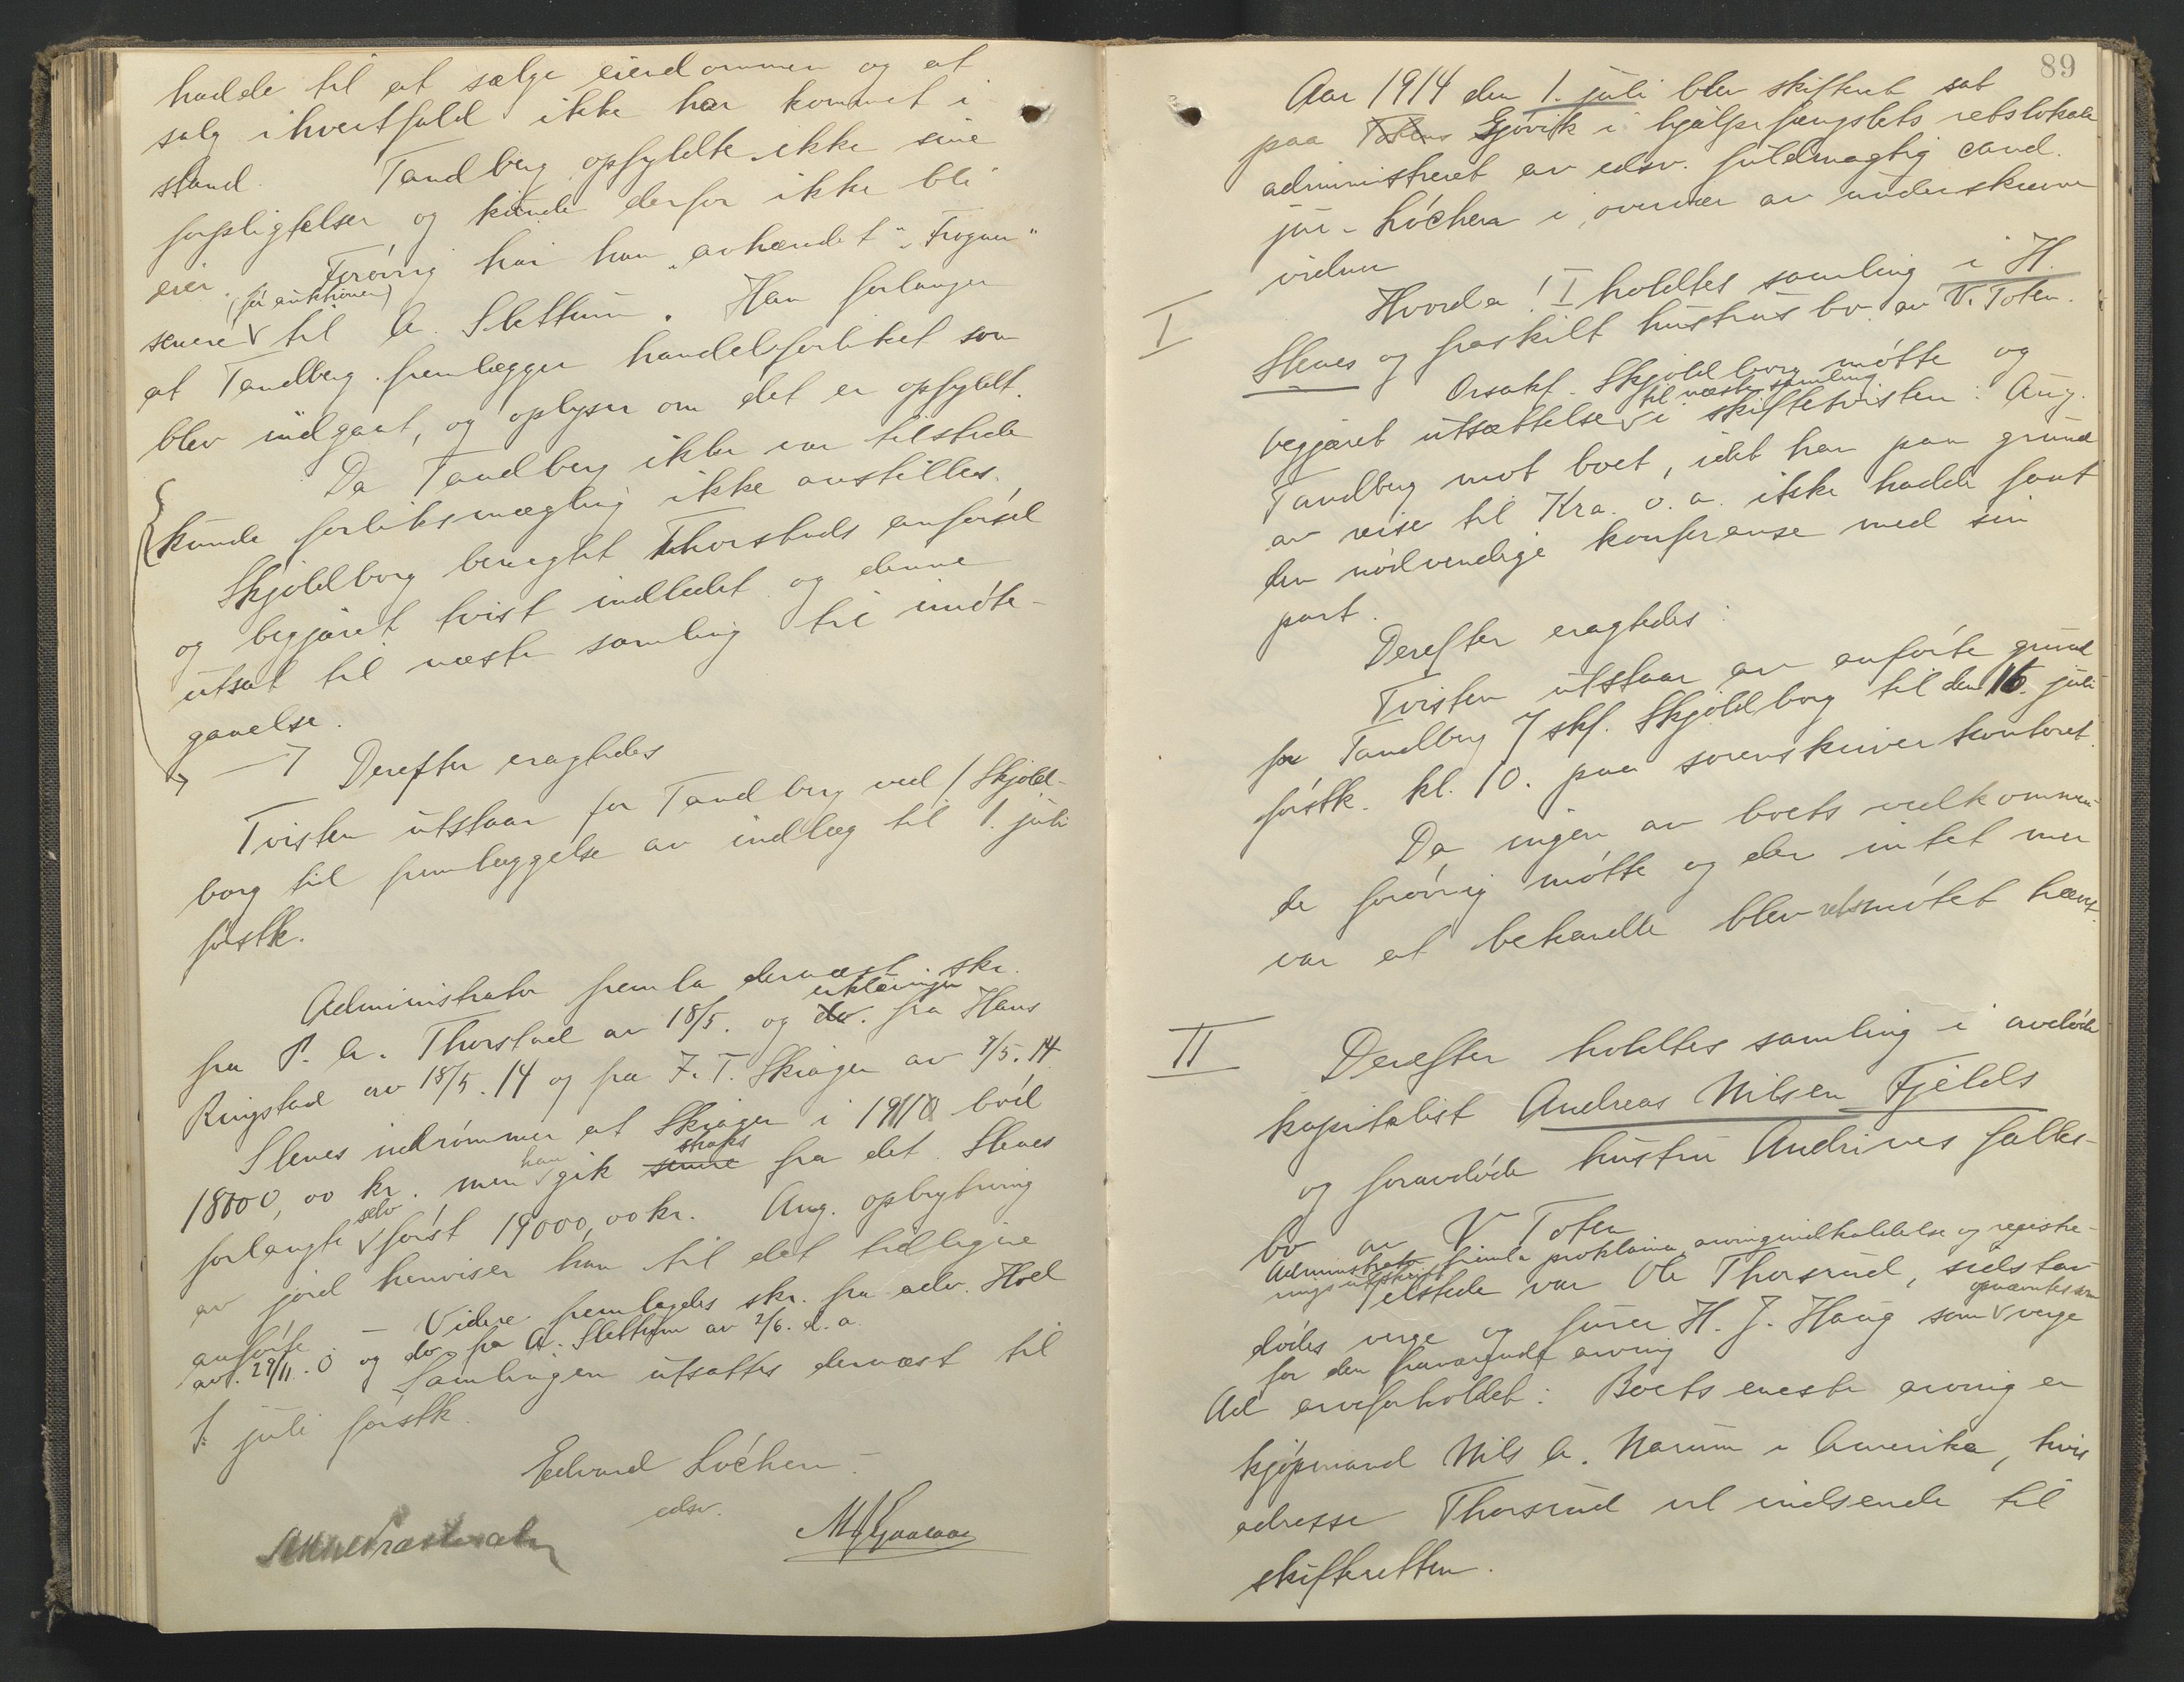 hadde til at sælge eiendommen og at
salg ihvertfald ikke har kommet i
stand. Tandberg opfyldte ikke sine
forpligtelser og kunde derfor ikke bli
eier. Forøvrig har han "avhændet" "Frogner"
(før auktionen)
senere til A. Slettum. Han forlanger
at Tandberg fremlægger handelsforliket som
blev indgaat, og oplyser om det er opfyldt.
Da Tandberg ikke var tilstede
kunde forliksmægling ikke anstilles.
Skjoldborg benegtet Thorstads anførsel
og begjæret tvist indledet og denne
utsat til næste samling til imøte-
gaaelse.
Derefter eragtedes
Tvisten utstaar for Tandberg ved / Skjold-
borg til fremlæggelse av indlæg til 1. juli
førstk.
Administrator fremla dernæst skr.
erklæringer
fra P. A. Thorstad av 18/5. og do. fra Hans
Ringstad av 18/5. 14 og fra F. T. Skiager av 9/5. 14
Stenes indrømmer at Skiager i 1910 bød
straks
18000,00 kr. men han gik senere fra det. Stenes
forlangte selv først 19000,00 kr. Ang. opbrytning
av jord henviser han til det tidligere
anførte. — Videre fremlagdes skr. fra adv. Hoel
av 29/11. 0 og do. fra A. Slettum av 2/6. d.a.
Samlingen utsattes dernæst til
1. juli førstk.
Edvard Løchen
edsv.
89
Aar 1914 den 1. juli blev skifteret sat
paa Totens Gjøvik i hjælpefængslets retslokale
administreret av edsv. fuldmægtig cand.
jur. Løchen i overvær av underskrevne
vidner
Hvorda! I holdtes samling i H.
I
Stenes og fraskilt hustrus bo av V. Toten.
Orsakf. Skjoldborg møtte og
til næste samling
begjæret utsættelse i skiftetvisten: Aug.
Tandberg mot boet, idet han paa grund
av reise til Kra. o. a. ikke hadde faat
den nødvendige konferanse med sin
part.
Derefter eragtedes:
Tvisten utstaar av anførte grund
for Tandberg / skf. Skjoldborg til den 16. juli
førstk. kl. 10. paa sorenskriverkontoret.
Da ingen av boets vedkommen-
de forøvrig møtte og der intet mer
var at behandle blev retsmøtet hævet.
II
Derefter holdtes samling i avdøde
kapitalist Andreas Nilsen Fjelds
og foravdøde hustru Andrines fælles-
bo av V Toten
Administrator fremla proklama, arvingindkaldelse og registre-
ringsutskrift
Tilstede var Ole Thorsrud, sidstav
opnævntes som
dødes verge og furer H. J. Haug som verge
for den fraværende arving
Ad arveforholdet: Boets eneste arving er
kjøpmand Nils A. Narum i Amerika, hvis
adresse Thorsrud vil indsende til
skifteretten.